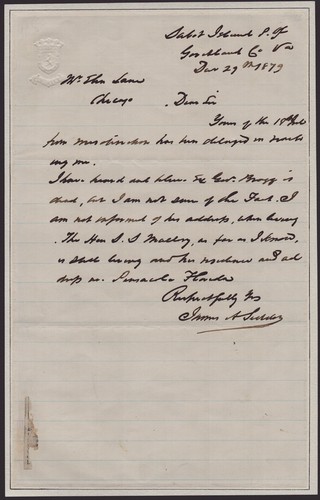 Sabot Island P. Of
Goochland Co Va
Dec 29th 1879
Mr. Eben Lane
Chicago Dear Sir
Yours of the 18th
has been delayed in reach
ing me.
I have heard Ex Gov. Bragg is
dead, but I am not sure of the fact. I
am not informed of his address, when living
The Hon S. S Mallory, as far as I know,
is still living and his residence and ad
dress is Pensacola Florida
Respectfully Yrs
James A Seddon